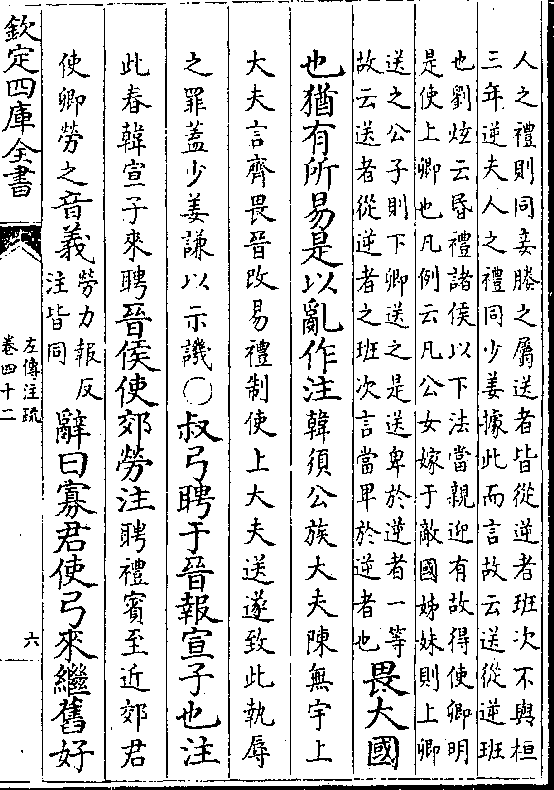 人之禮則同妾媵之屬送者皆從逆者班次不與桓
三年逆夫人之禮同少姜據此而言故云送從逆班
也劉炫云昏禮諸侯以下法當親迎有故得使卿明
是使上卿也凡例云凡公女嫁于敵國姊妹則上卿
送之公子則下卿送之是送卑於逆者一等
故云送者從逆者之班次言當卑於逆者也
畏大國
也猶有所易是以亂作注韓須公族大夫陳無宇上
大夫言齊畏晉改易禮制使上大夫送遂致此執辱
之罪蓋少姜謙以示譏○叔弓聘于晉報宣子也注
此春韓宣子來聘晉侯使郊勞注聘禮賓至近郊君
使卿勞之音義勞力報反
注皆同
辭曰寡君使弓來繼舊好
欽定四庫全書
左傳注疏
卷四十二
六